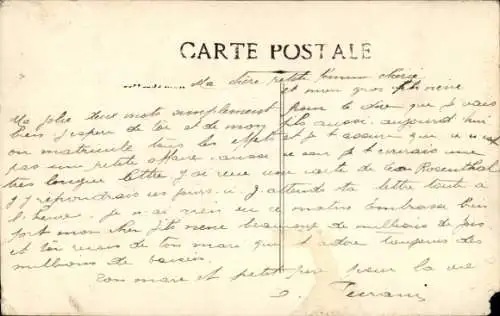 CARTE POSTALE
Ma chère petite femme chérie
et mon gros
Ma jolie deux mots simplement pour te dire que je vais
bien j'espère de toi et de mon fils aussi. aujourd'hui
on matricule tous les et je t'assure que
pas une petite affaire. aussi ce soir je t'écrirais une
très longue lettre. J'ai reçu une carte de Rosenthal
j'y répondrais ces jours ci. J'attends ta lettre toute à
l'heure. je n'ai rien eu ce matin. Embrasse bien
fort mon cher fils beaucoup de millions de fois
et toi reçois de ton mari qui t'adore toujours des
millions de baisers.
Ton mari et petit père pour la vie